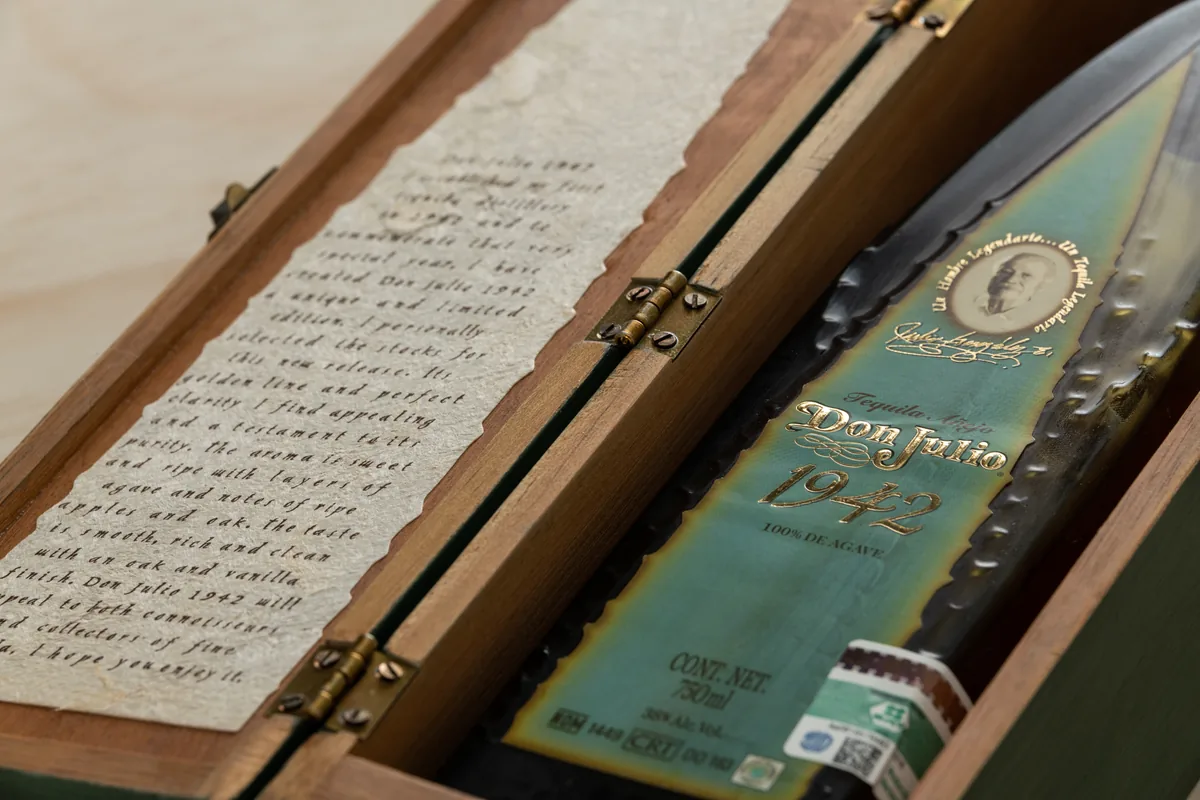 Don Julio 1942
I established my first
tequila distillery
in 1942 and to
commemorate that very
special year, I have
created Don Julio 1942
a unique and limited
edition. I personally
selected the stocks for
this new release. Its
golden line and perfect
clarity I find appealing
and a testament to its
purity, the aroma is sweet
and ripe with layers of
agave and notes of ripe
apples and oak. the taste
is smooth, rich and clean
with an oak and vanilla
finish. Don Julio 1942 will
appeal to both connoisseurs
and collectors of fine
I hope you enjoy it.
Un Hombre Legendario... Un Tequila Legendario
Julio González E.
Tequila Añejo
Don Julio
1942
100% DE AGAVE
CONT. NET.
750 ml
38% Alc. Vol.
NOM 1449 CRT